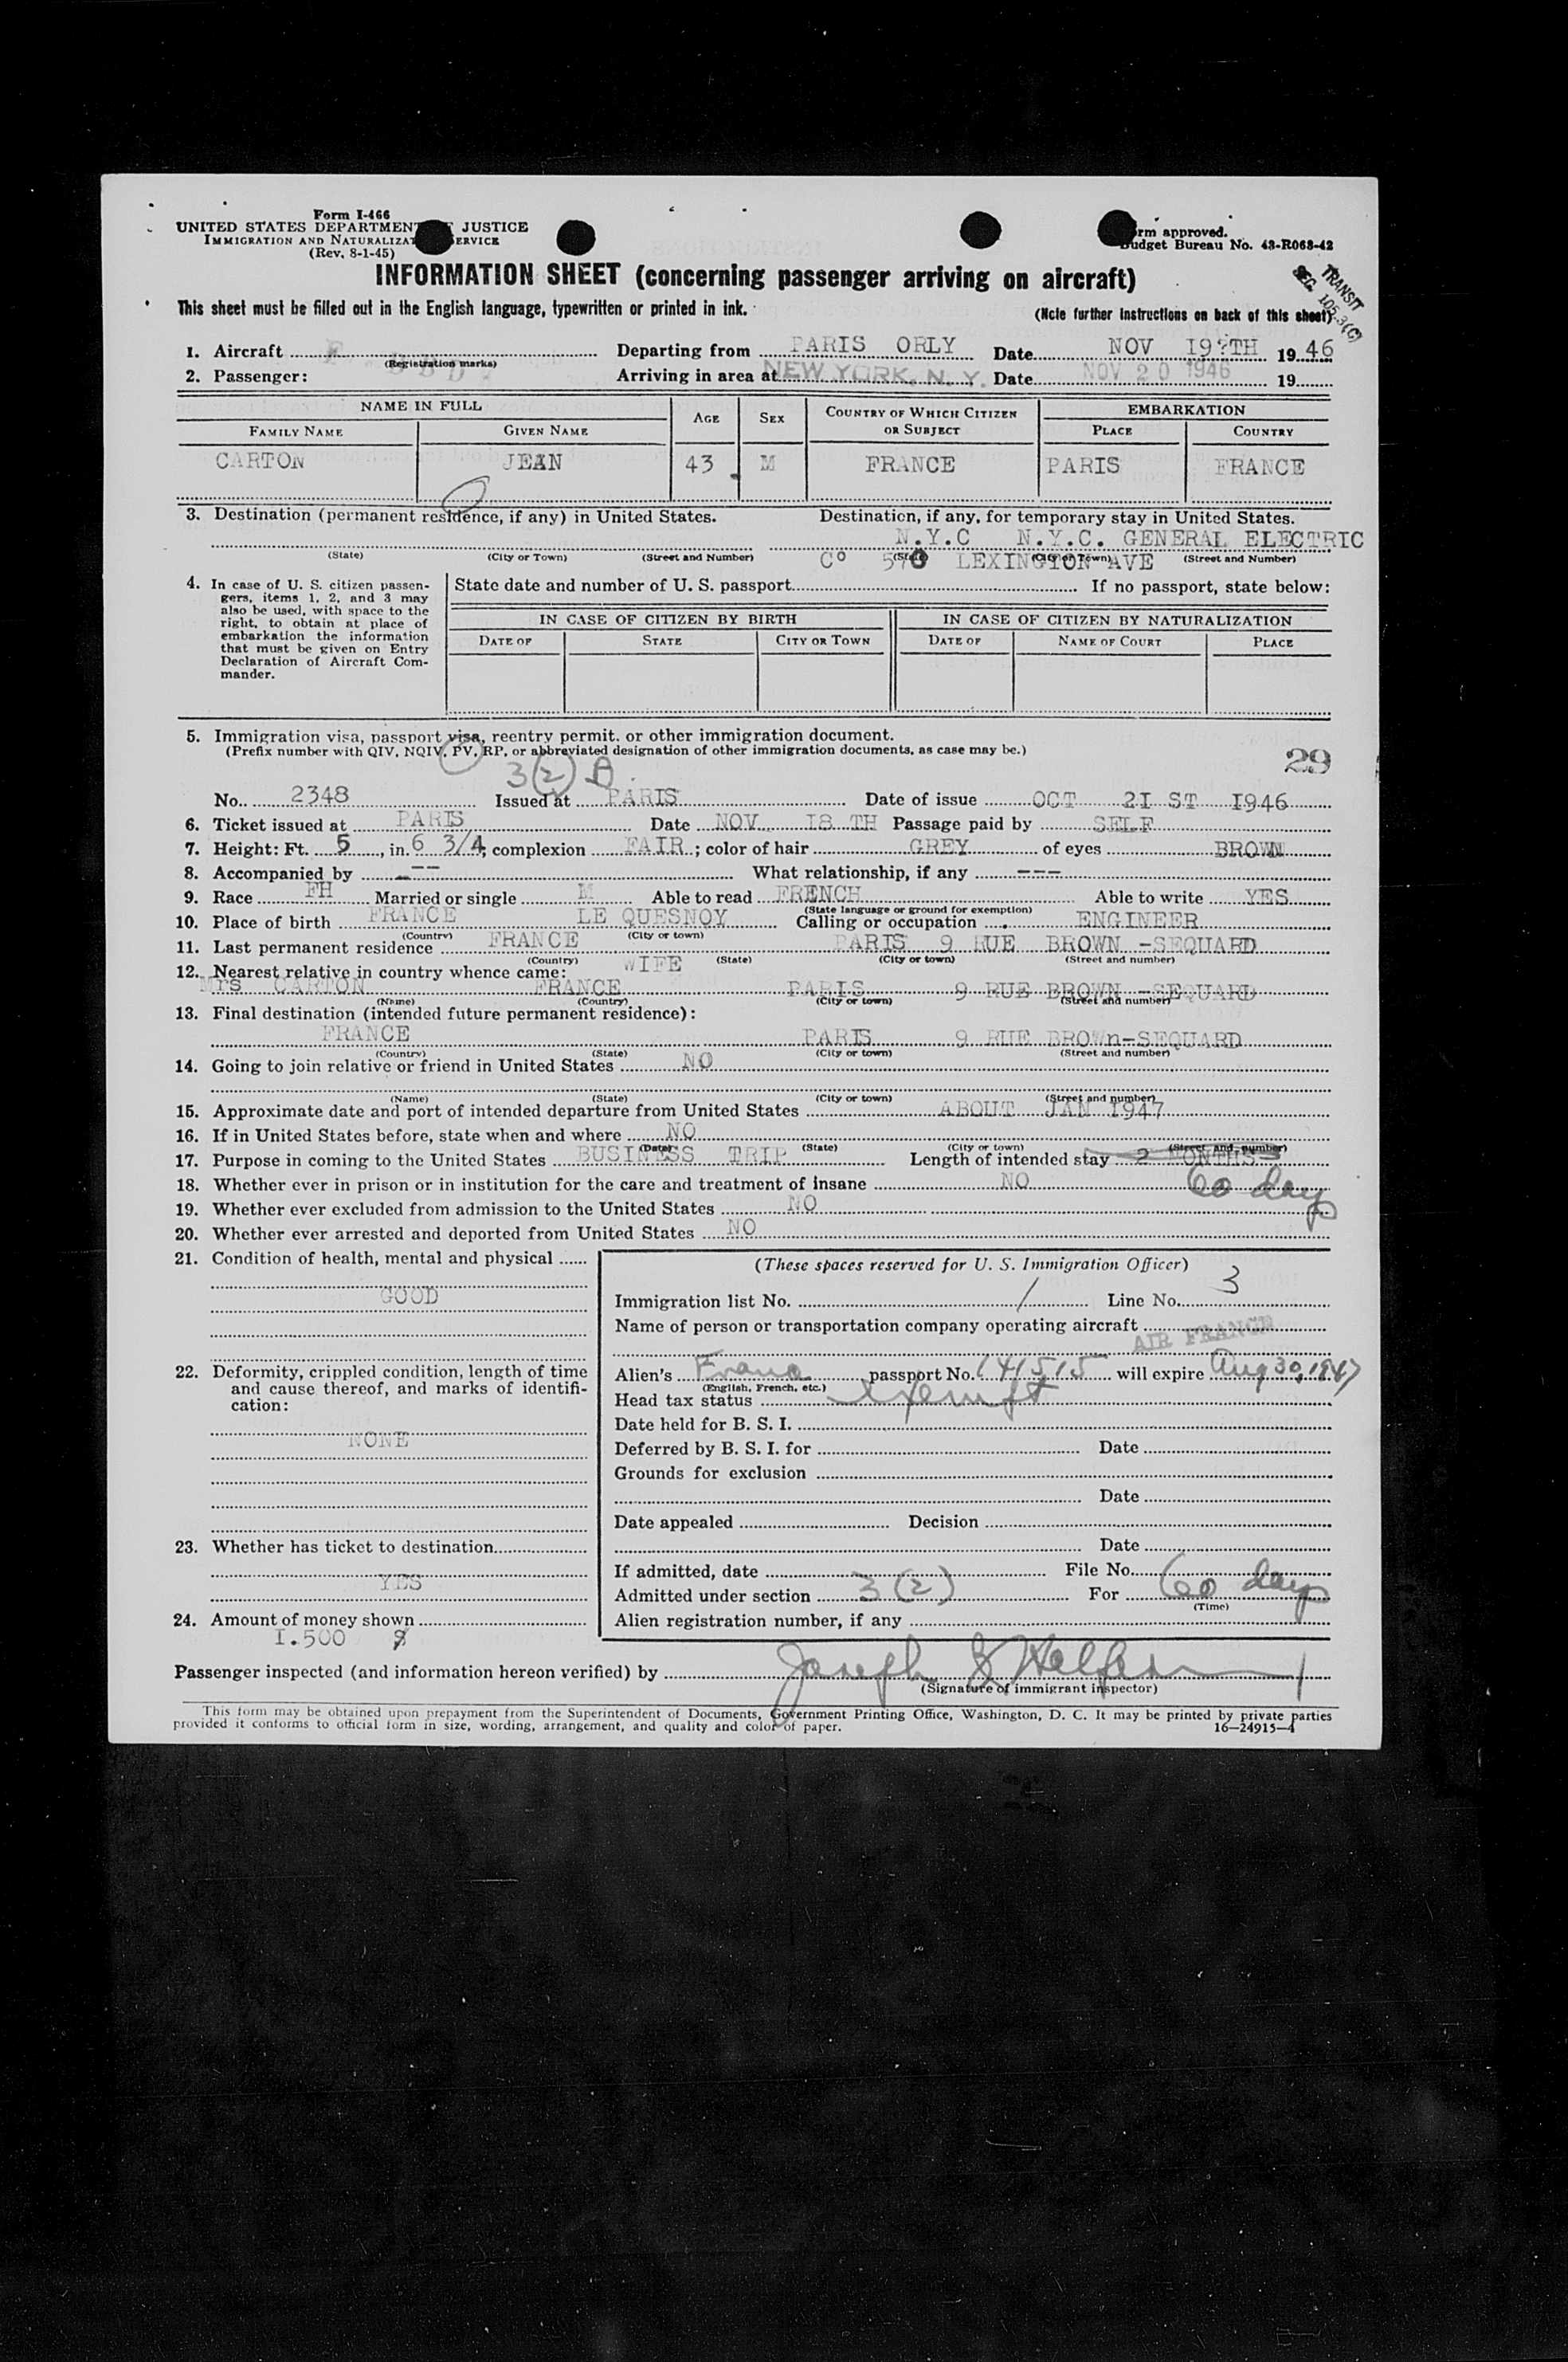 Form I-466
UNITED STATES DEPARTMENT JUSTICE
IMMIGRATION AND NATURALIZAT ERVICE
(Rev. 8-1-45)
rm approved.
udget Bureau No. 43-R063-42
INFORMATION SHEET (concerning passenger arriving on aircraft)
TRANSIT
SEC. 105.3(C)
This sheet must be filled out in the English language, typewritten or printed in ink.
(Note further instructions on back of this sheet)
1. Aircraft F (Registration marks) Departing from PARIS ORLY Date NOV 19?TH 1946
2. Passenger: Arriving in area at NEW YORK, N. Y. Date NOV 20 1946 19
NAME IN FULL AGE SEX COUNTRY OF WHICH CITIZEN OR SUBJECT EMBARKATION
FAMILY NAME GIVEN NAME PLACE COUNTRY
CARTON JEAN 43 M FRANCE PARIS FRANCE
3. Destination (permanent residence, if any) in United States. Destination, if any, for temporary stay in United States.
N.Y.C N.Y.C. GENERAL ELECTRIC
(State) (City or Town) (Street and Number) (State) (City or Town) (Street and Number)
C° 570 LEXINGTON AVE
4. In case of U. S. citizen passen-
gers, items 1, 2, and 3 may
also be used, with space to the
right, to obtain at place of
embarkation the information
that must be given on Entry
Declaration of Aircraft Com-
mander.
State date and number of U. S. passport If no passport, state below:
IN CASE OF CITIZEN BY BIRTH IN CASE OF CITIZEN BY NATURALIZATION
DATE OF STATE CITY OR TOWN DATE OF NAME OF COURT PLACE
5. Immigration visa, passport visa, reentry permit, or other immigration document.
(Prefix number with QIV, NQIV, PV, RP, or abbreviated designation of other immigration documents, as case may be.)
29
3(2) B
No. 2348 Issued at PARIS Date of issue OCT 2I ST I946
6. Ticket issued at PARIS Date NOV I8 TH Passage paid by SELF
7. Height: Ft. 5, in. 6 3/4; complexion FAIR; color of hair GREY of eyes BROWN
8. Accompanied by --- What relationship, if any ---
9. Race FH Married or single M Able to read FRENCH Able to write YES
(State language or ground for exemption)
10. Place of birth FRANCE LE QUESNOY Calling or occupation ENGINEER
(Country) (City or town)
11. Last permanent residence FRANCE PARIS 9 RUE BROWN -SEQUARD
(Country) (State) (City or town) (Street and number)
12. Nearest relative in country whence came: WIFE
Mrs CARTON FRANCE PARIS 9 RUE BROWN -SEQUARD
(Name) (Country) (City or town) (Street and number)
13. Final destination (intended future permanent residence):
FRANCE PARIS 9 RUE BROWn-SEQUARD
(Country) (State) (City or town) (Street and number)
14. Going to join relative or friend in United States NO
(Name) (State) (City or town) (Street and number)
15. Approximate date and port of intended departure from United States ABOUT JAN I947
16. If in United States before, state when and where NO
(Date) (State) (City or town) (Street and number)
17. Purpose in coming to the United States BUSINESS TRIP Length of intended stay 2 MONTHS
60 days
18. Whether ever in prison or in institution for the care and treatment of insane NO
19. Whether ever excluded from admission to the United States NO
20. Whether ever arrested and deported from United States NO
21. Condition of health, mental and physical
GOOD
22. Deformity, crippled condition, length of time
and cause thereof, and marks of identifi-
cation:
NONE
23. Whether has ticket to destination
YES
24. Amount of money shown
I.500 $
(These spaces reserved for U. S. Immigration Officer)
Immigration list No. 1 Line No. 3
Name of person or transportation company operating aircraft
AIR FRANCE
Alien's passport No. 141515 will expire Aug 30, 1947
(English, French, etc.)
Head tax status exempt
Date held for B. S. I.
Deferred by B. S. I. for Date
Grounds for exclusion
Date
Date appealed Decision
Date
If admitted, date File No.
Admitted under section 3(2) For 60 days
(Time)
Alien registration number, if any
Passenger inspected (and information hereon verified) by Joseph
(Signature of immigrant inspector)
This form may be obtained upon prepayment from the Superintendent of Documents, Government Printing Office, Washington, D. C. It may be printed by private parties
provided it conforms to official form in size, wording, arrangement, and quality and color of paper. 16—24915-4